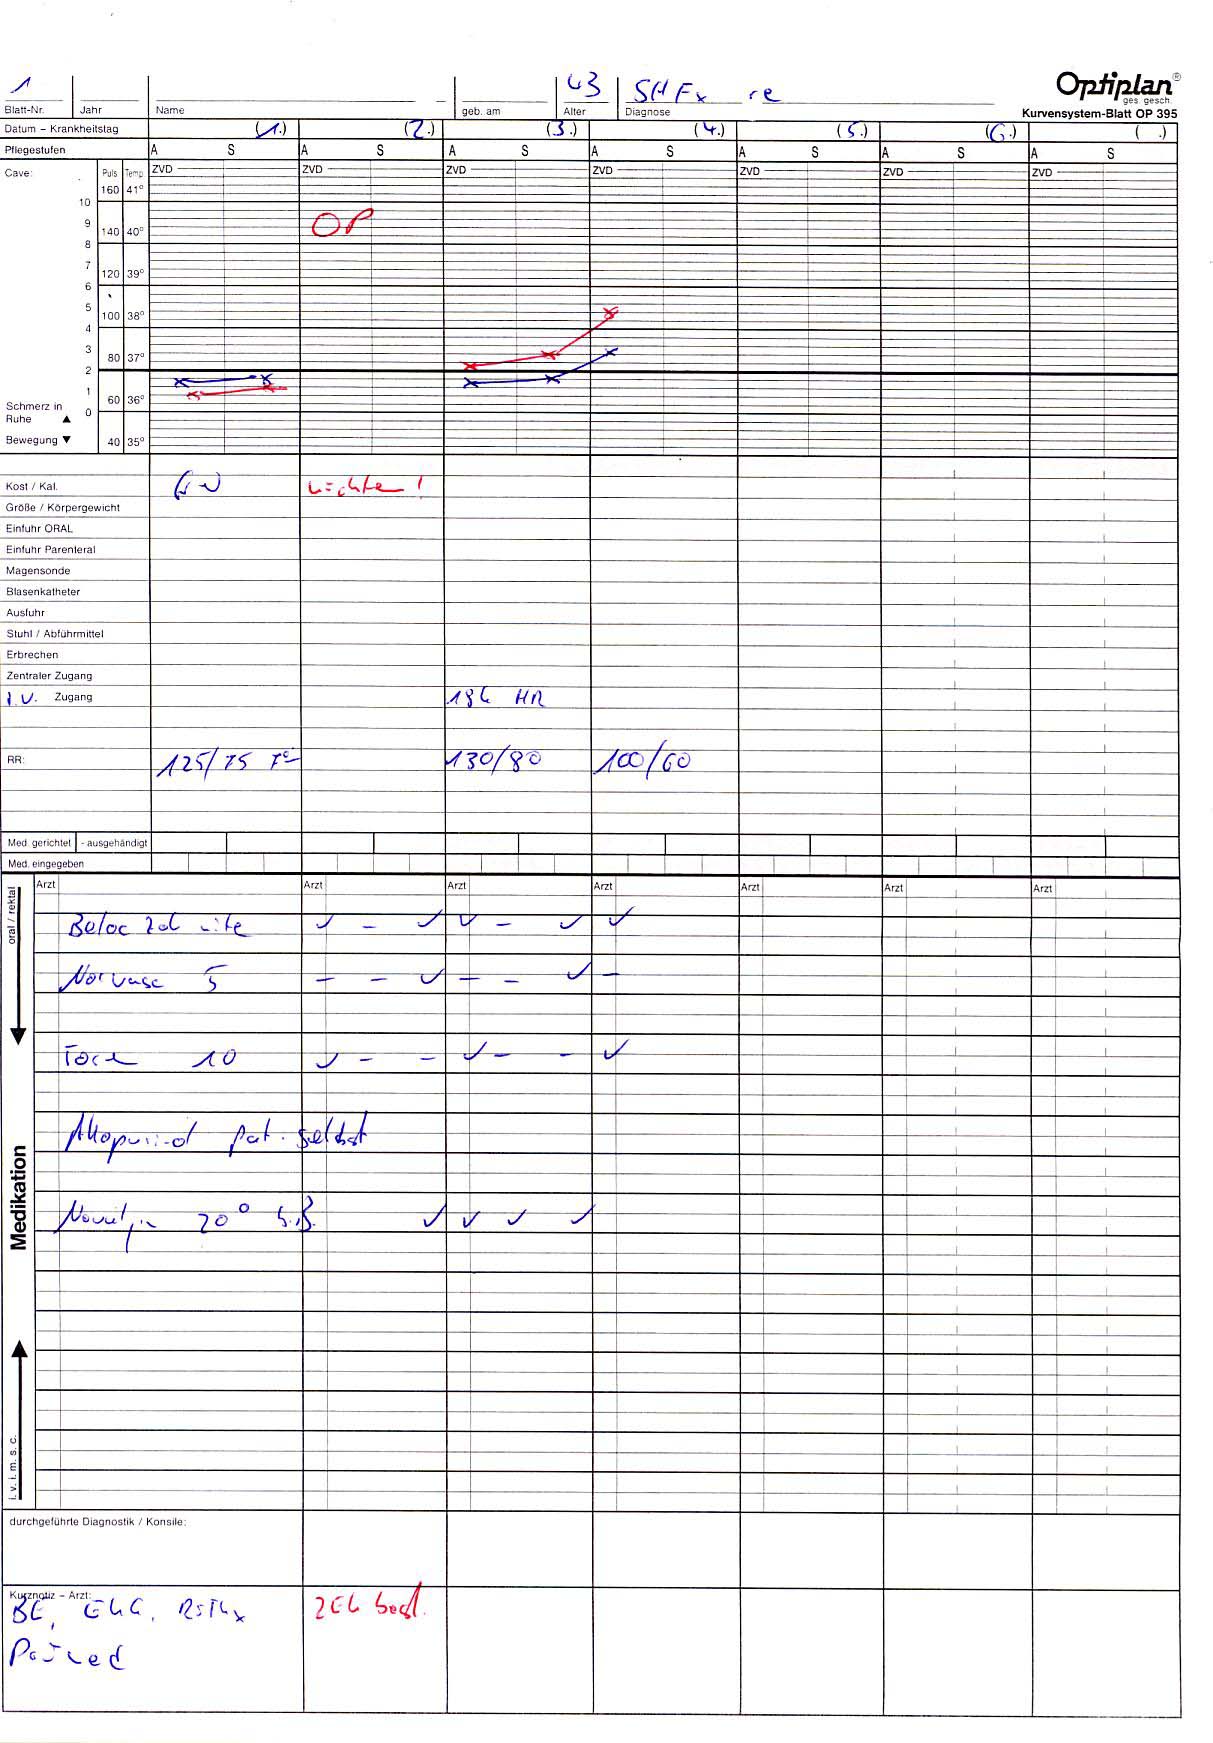 1
43
SHFx re
Optiplan®
ges. gesch.
Blatt-Nr. Jahr Name geb. am Alter Diagnose
Kurvensystem-Blatt OP 395
Datum – Krankheitstag (1.) (2.) (3.) (4.) (5.) (6.) ( .)
Pflegestufen A S A S A S A S A S A S A S
Cave: Puls Temp ZVD ZVD ZVD ZVD ZVD ZVD ZVD
160 41°
10
9 140 40° OP
8
7 120 39°
6
5 100 38°
4
3 80 37°
2
1 60 36°
Schmerz in
Ruhe ▲ 0
Bewegung ▼ 40 35°
Kost / Kal. nüchtern!
Größe / Körpergewicht
Einfuhr ORAL
Einfuhr Parenteral
Magensonde
Blasenkatheter
Ausfuhr
Stuhl / Abführmittel
Erbrechen
Zentraler Zugang
i.V. Zugang 18G HR
RR: 125/75 130/80 100/60
Med. gerichtet - ausgehändigt
Med. eingegeben
Arzt Arzt Arzt Arzt Arzt Arzt Arzt
oral / rektal
Beloc Zok mite ✓ – ✓ ✓ – ✓ ✓
Norvasc 5 – – ✓ – – ✓ –
Torem 10 ✓ – – ✓ – – ✓
Allopurinol Pat. selbst
Novalgin 20° b.B. ✓ ✓ ✓ ✓
Medikation
i. v. i. m. s. c.
durchgeführte Diagnostik / Konsile:
Kurznotiz – Arzt:
BE, EKG, RöThx 2EK best.